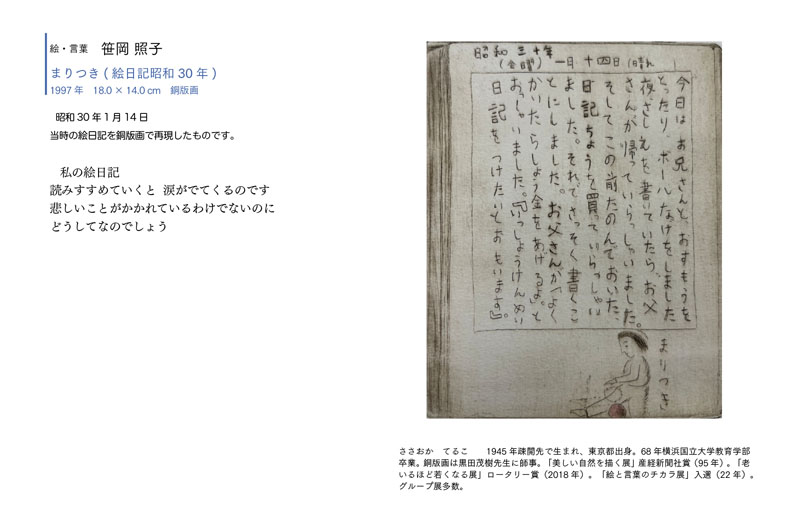 絵・言葉　笹岡 照子
まりつき ( 絵日記昭和 30 年 )
1997 年　18.0 × 14.0 cm　銅版画
昭和 30 年 1 月 14 日
当時の絵日記を銅版画で再現したものです。
私の絵日記
読みすすめていくと 涙がでてくるのです
悲しいことがかかれているわけでないのに
どうしてなのでしょう
昭和三十年
(金曜) 一月十四日 (晴れ )
今日はお兄さんと、おすもうを
とったり、ボールなげをしました
夜、さしえを書いていたら、お父
さんが帰っていらっしゃいました。
そしてこの前たのんでおいた、
日記ちょうを買っていらっしゃい
ました。それでさっそく書くこ
とにしました。お父さんが「よく
かいたらしょう金をあげるよ。」と
おっしゃいました。『いっしょうけんめい
日記をつけたいとおもいます』。
まりつき
ささおか　てるこ　　1945 年疎開先で生まれ、東京都出身。68 年横浜国立大学教育学部
卒業。銅版画は黒田茂樹先生に師事。「美しい自然を描く展」産経新聞社賞（95 年）。「老
いるほど若くなる展」ロータリー賞（2018 年）。　「絵と言葉のチカラ展」入選（22 年）。
グループ展多数。